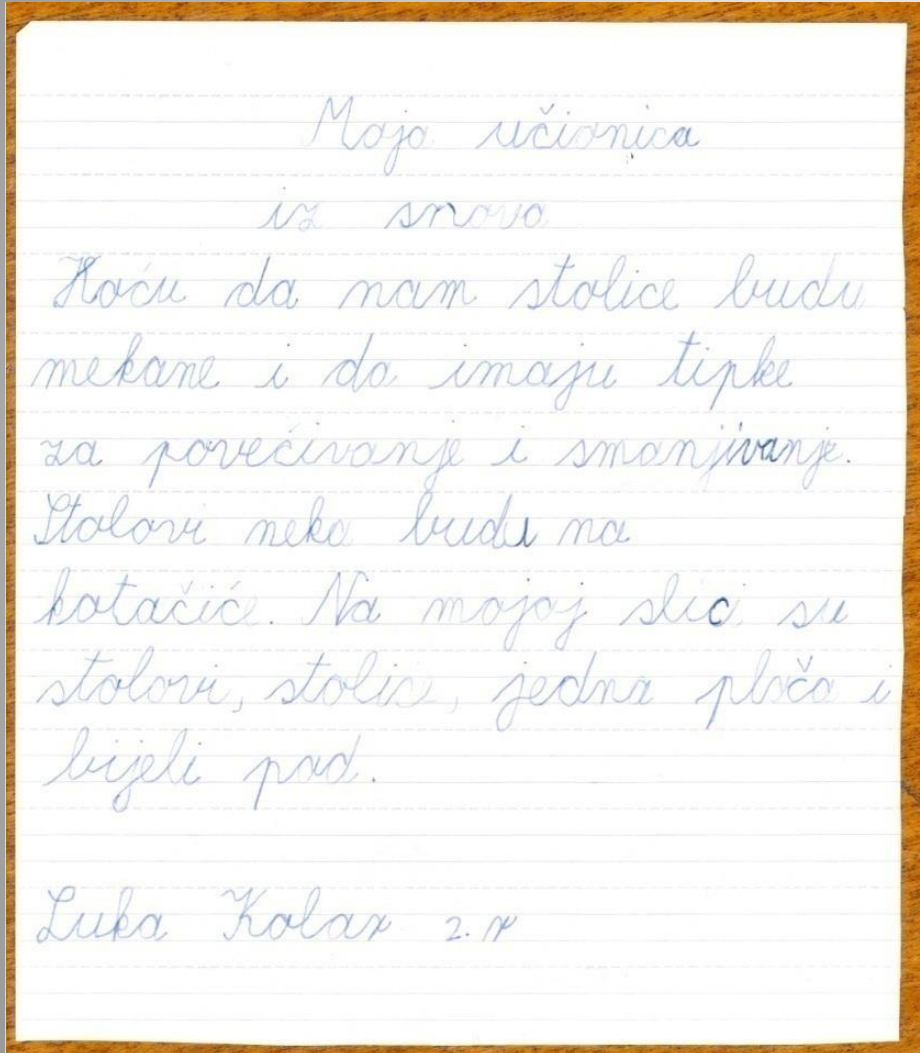 Moja učionica
iz snova
Hoću da nam stolice budu
mekane i da imaju tipke
za povećivanje i smanjivanje.
Stolovi neka budu na
kotačiće. Na mojoj slici su
stolovi, stolice, jedna ploča i
bijeli pod.
Luka Kolar 2. r